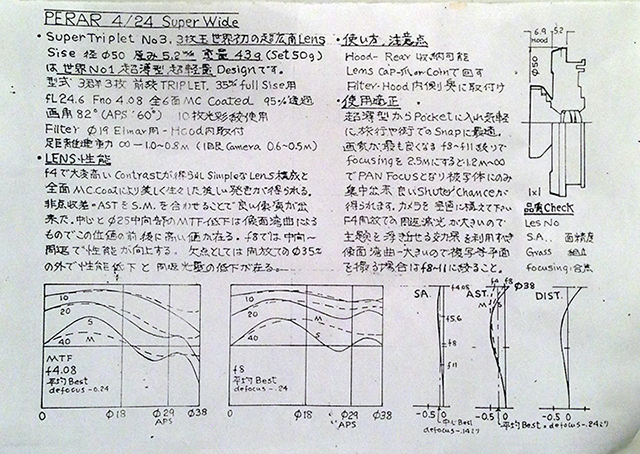 PERAR 4/24 Super Wide
• Super Triplet No3. 3枚玉世界初の超広角Lens
Sise 径 φ50 厚み 5.2㎜ 重量 43g (Set 50g)
は世界No1 超薄型 超軽量 Designです。
型式 3群3枚 前絞TRIPLET. 35㎜ full Sise用
fL24.6 Fno 4.08 全6面MC Coated 95%透過
画角 82° (APS: 60°) 10枚光彩絞使用
Filter φ19 Elmar用 - Hood内取付
距離 ∞ — 1.0~0.8m (1部Camera 0.6~0.5m)
• LENS性能
f4で大変高いContrastが得られ SimpleなLens構成と
全面M.C.Coatにより美しく生々した美しい発色が得られる。
非点収差=ASTをS.M.を合わせることで良い像質が出
来た。中心とφ25中間部のMTF低下は像面湾曲による
ものでこの位値の前后に高い値が在る。f8では中向〜
周辺で性能が向上する。欠点としては開放でのφ35%
の外で性能低下と周辺光量の低下が在る。
• 使い方、注意点
Hood - Rear 収納可能
Lens Cap-爪orCoinで回す
Filter-Hood内側奥に取付け
• 使用適正
超薄型からPocketに入れ気軽
に旅行や街でのSnapに最適。
画質が最も良くなるf8~f11絞りで
focusingを2.5mにすると1.2m~∞
でPAN Focusとなり被写体にのみ
集中出来 良いShutterChanceが
得られます。カメラを空に構えて下さい
F4開放での周辺減光が大きいので
主題を浮き出せる効果を利用下さい
像面湾曲-大きいので複写等平面
を撮る場合はf8~11に絞ること。
6.9 5.2
Hood
φ50
1x1
品質Check
Les No
S.A.. 面精度
Grass 組立
focusing:合焦
10
20
40
S
M
MTF
f4.08
平均Best
defocus -0.24
0 φ18 φ29 φ38
APS
10
20
40
M
S
f8
平均Best
defocus -.24
0 φ18 φ29 φ38
APS
SA.
f4.08
f5.6
f8
f11
-0.5 0
中心Best
defocus -.14より
AST. f4 f8 φ38
M S
-0.5 0
平均Best・defocus -.24より
DIST.
-0.5 0